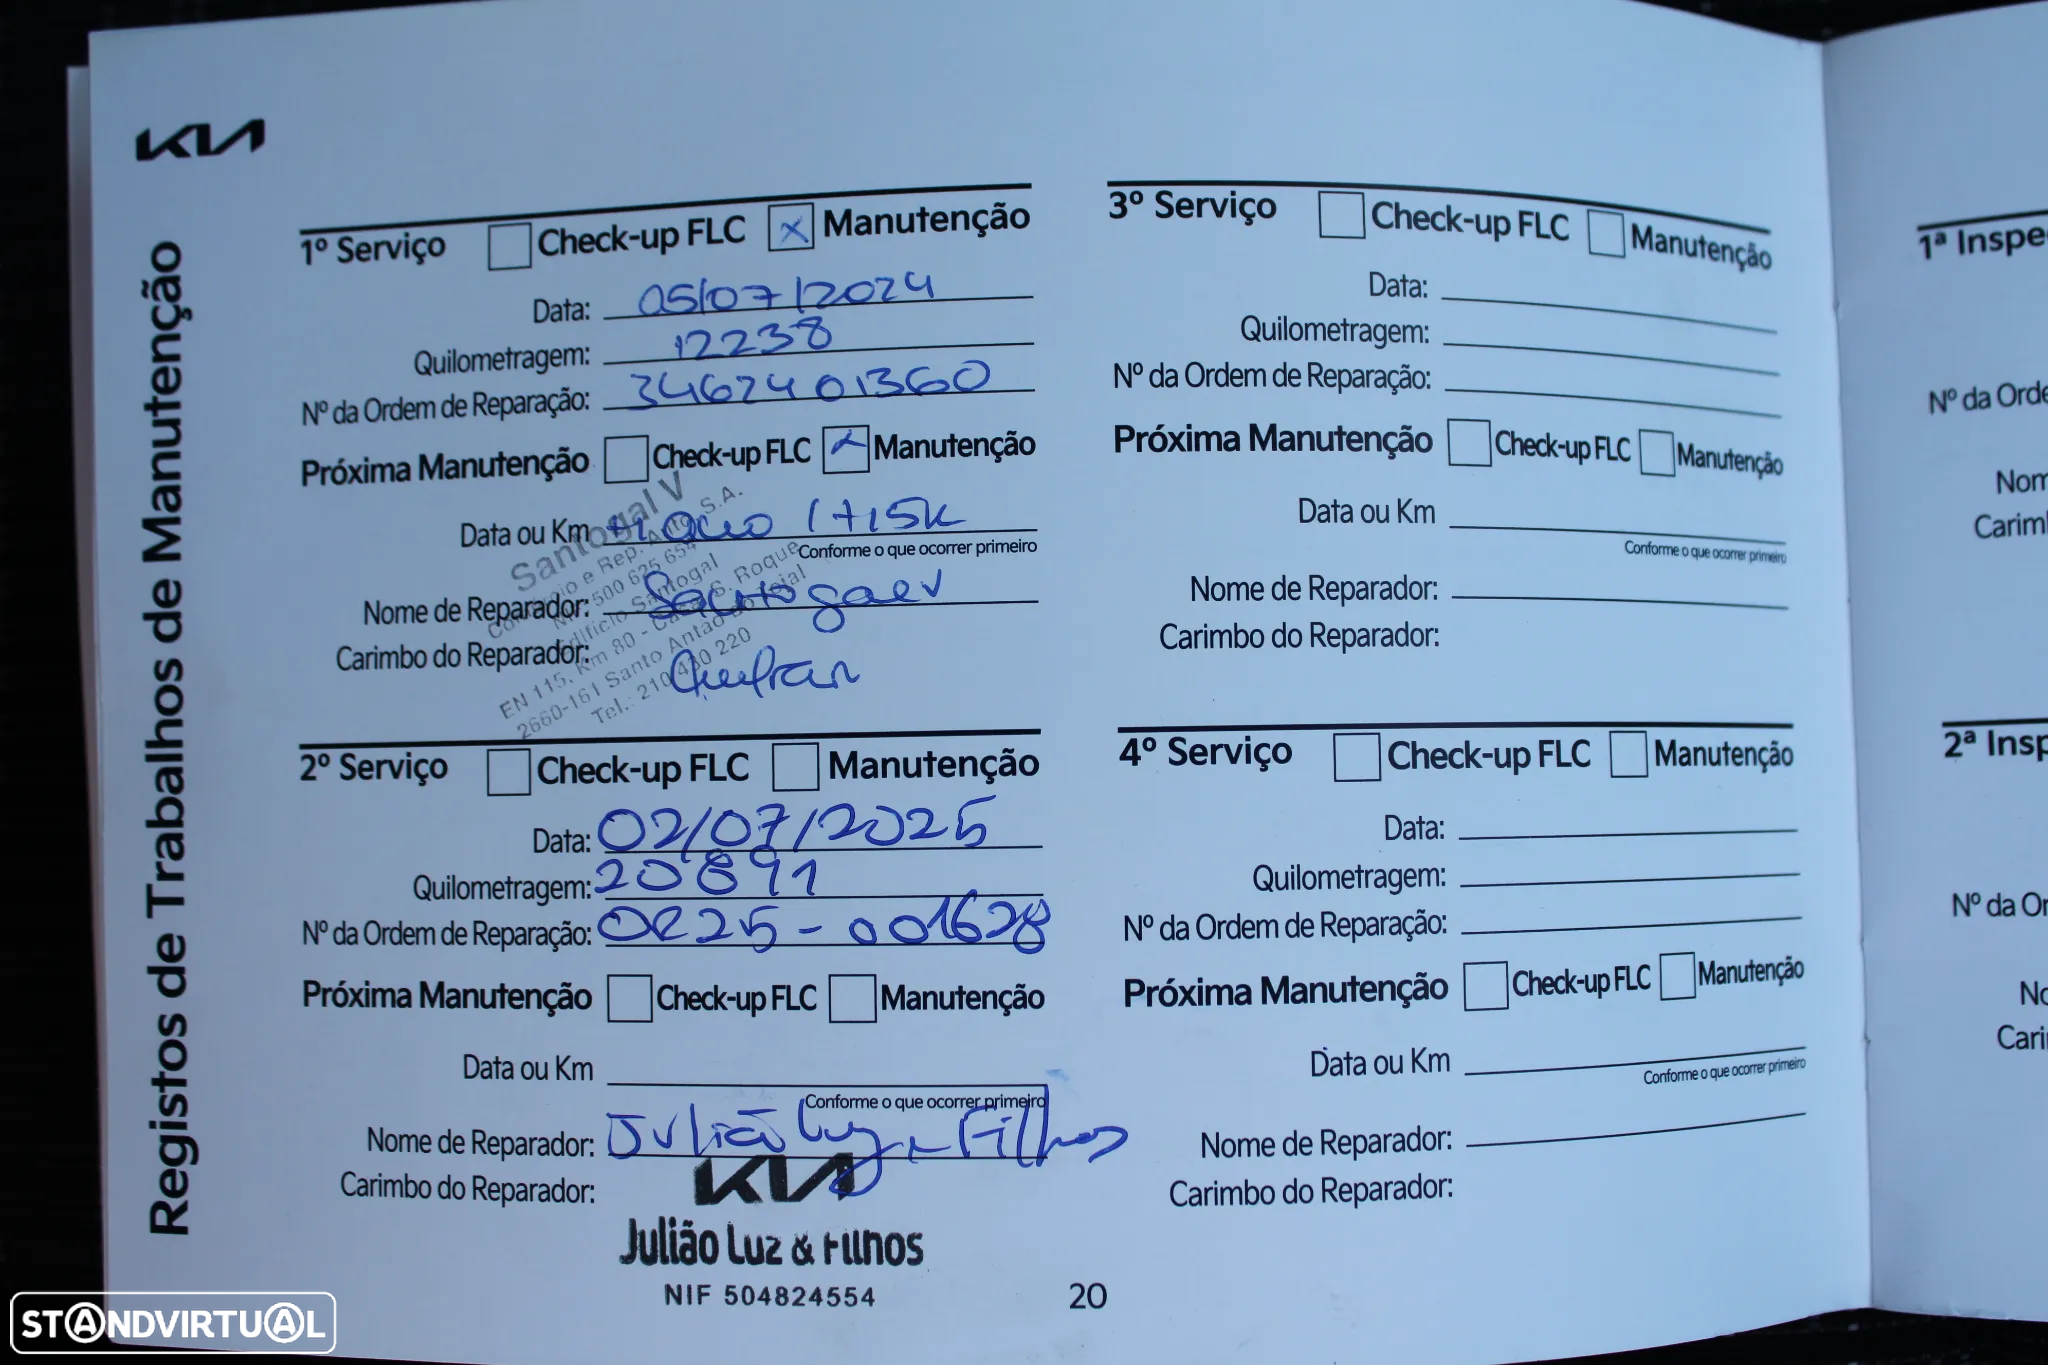 KIA
Registos de Trabalhos de Manutenção
1º Serviço Check-up FLC x Manutenção
Data: 05/07/2024
Quilometragem: 12238
Nº da Ordem de Reparação: 34624 01360
Próxima Manutenção Check-up FLC Manutenção
Data ou Km 1+15k
Conforme o que ocorrer primeiro
Nome de Reparador: Santogal V
Carimbo do Reparador:
Santogal V
Comércio e Rep. Auto, S.A.
500 625 654
Edifício Santogal
EN 115, Km 80 - Casal S. Roque
2660-161 Santo Antão do Tojal
Tel.: 210 430 220
2º Serviço Check-up FLC Manutenção
Data: 02/07/2025
Quilometragem: 20891
Nº da Ordem de Reparação: OR25-001628
Próxima Manutenção Check-up FLC Manutenção
Data ou Km
Conforme o que ocorrer primeiro
Nome de Reparador: Julião Luz e Filhos
Carimbo do Reparador:
KIA
Julião Luz & Filhos
NIF 504824554
3º Serviço Check-up FLC Manutenção
Data:
Quilometragem:
Nº da Ordem de Reparação:
Próxima Manutenção Check-up FLC Manutenção
Data ou Km
Conforme o que ocorrer primeiro
Nome de Reparador:
Carimbo do Reparador:
4º Serviço Check-up FLC Manutenção
Data:
Quilometragem:
Nº da Ordem de Reparação:
Próxima Manutenção Check-up FLC Manutenção
Data ou Km
Conforme o que ocorrer primeiro
Nome de Reparador:
Carimbo do Reparador:
20
1ª Inspe
Nº da Orde
Nom
Carim
2ª Insp
Nº da Or
No
Cari
STANDVIRTUAL